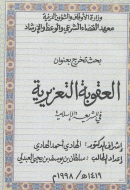 وزارة الأوقاف والشؤون الدينية
معهد القضاء الشرعي والوعظ والإرشاد
بحث تخرج بعنوان
العقوبة التعزيرية
في الشريعة الإسلامية
إشراف الدكتور: الهادي أحمد الهادي
إعداد الطالب: سلطان بن يوسف بن يحيى العبدلي
١٤١٩هـ/١٩٩٨م